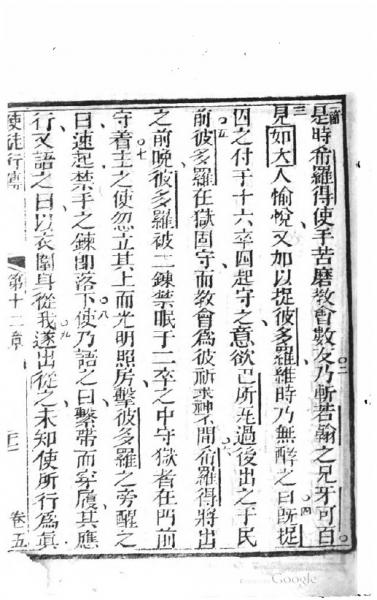 是時希羅得使手苦磨教會數友乃斬若翰之兄牙可百
見如大人愉悅又加以捉彼多羅維時乃無酵之日旣捉
囚之付于十六卒四起守之意欲巴所兊過後出之于民
前彼多羅在獄固守而教會為彼祈求神不間希羅得將出
之前晚彼多羅被二鍊禁眠于二卒之中守獄者在門前
守着主之使忽立其上而光明照房擊彼多羅之旁醒之
曰速起禁手之鍊卽落下使乃語之曰繫帶而穿履其應
行又語之曰以衣圍身從我遂出從之未知使所行為真
使徒行傳 第十二章 卷五
Google